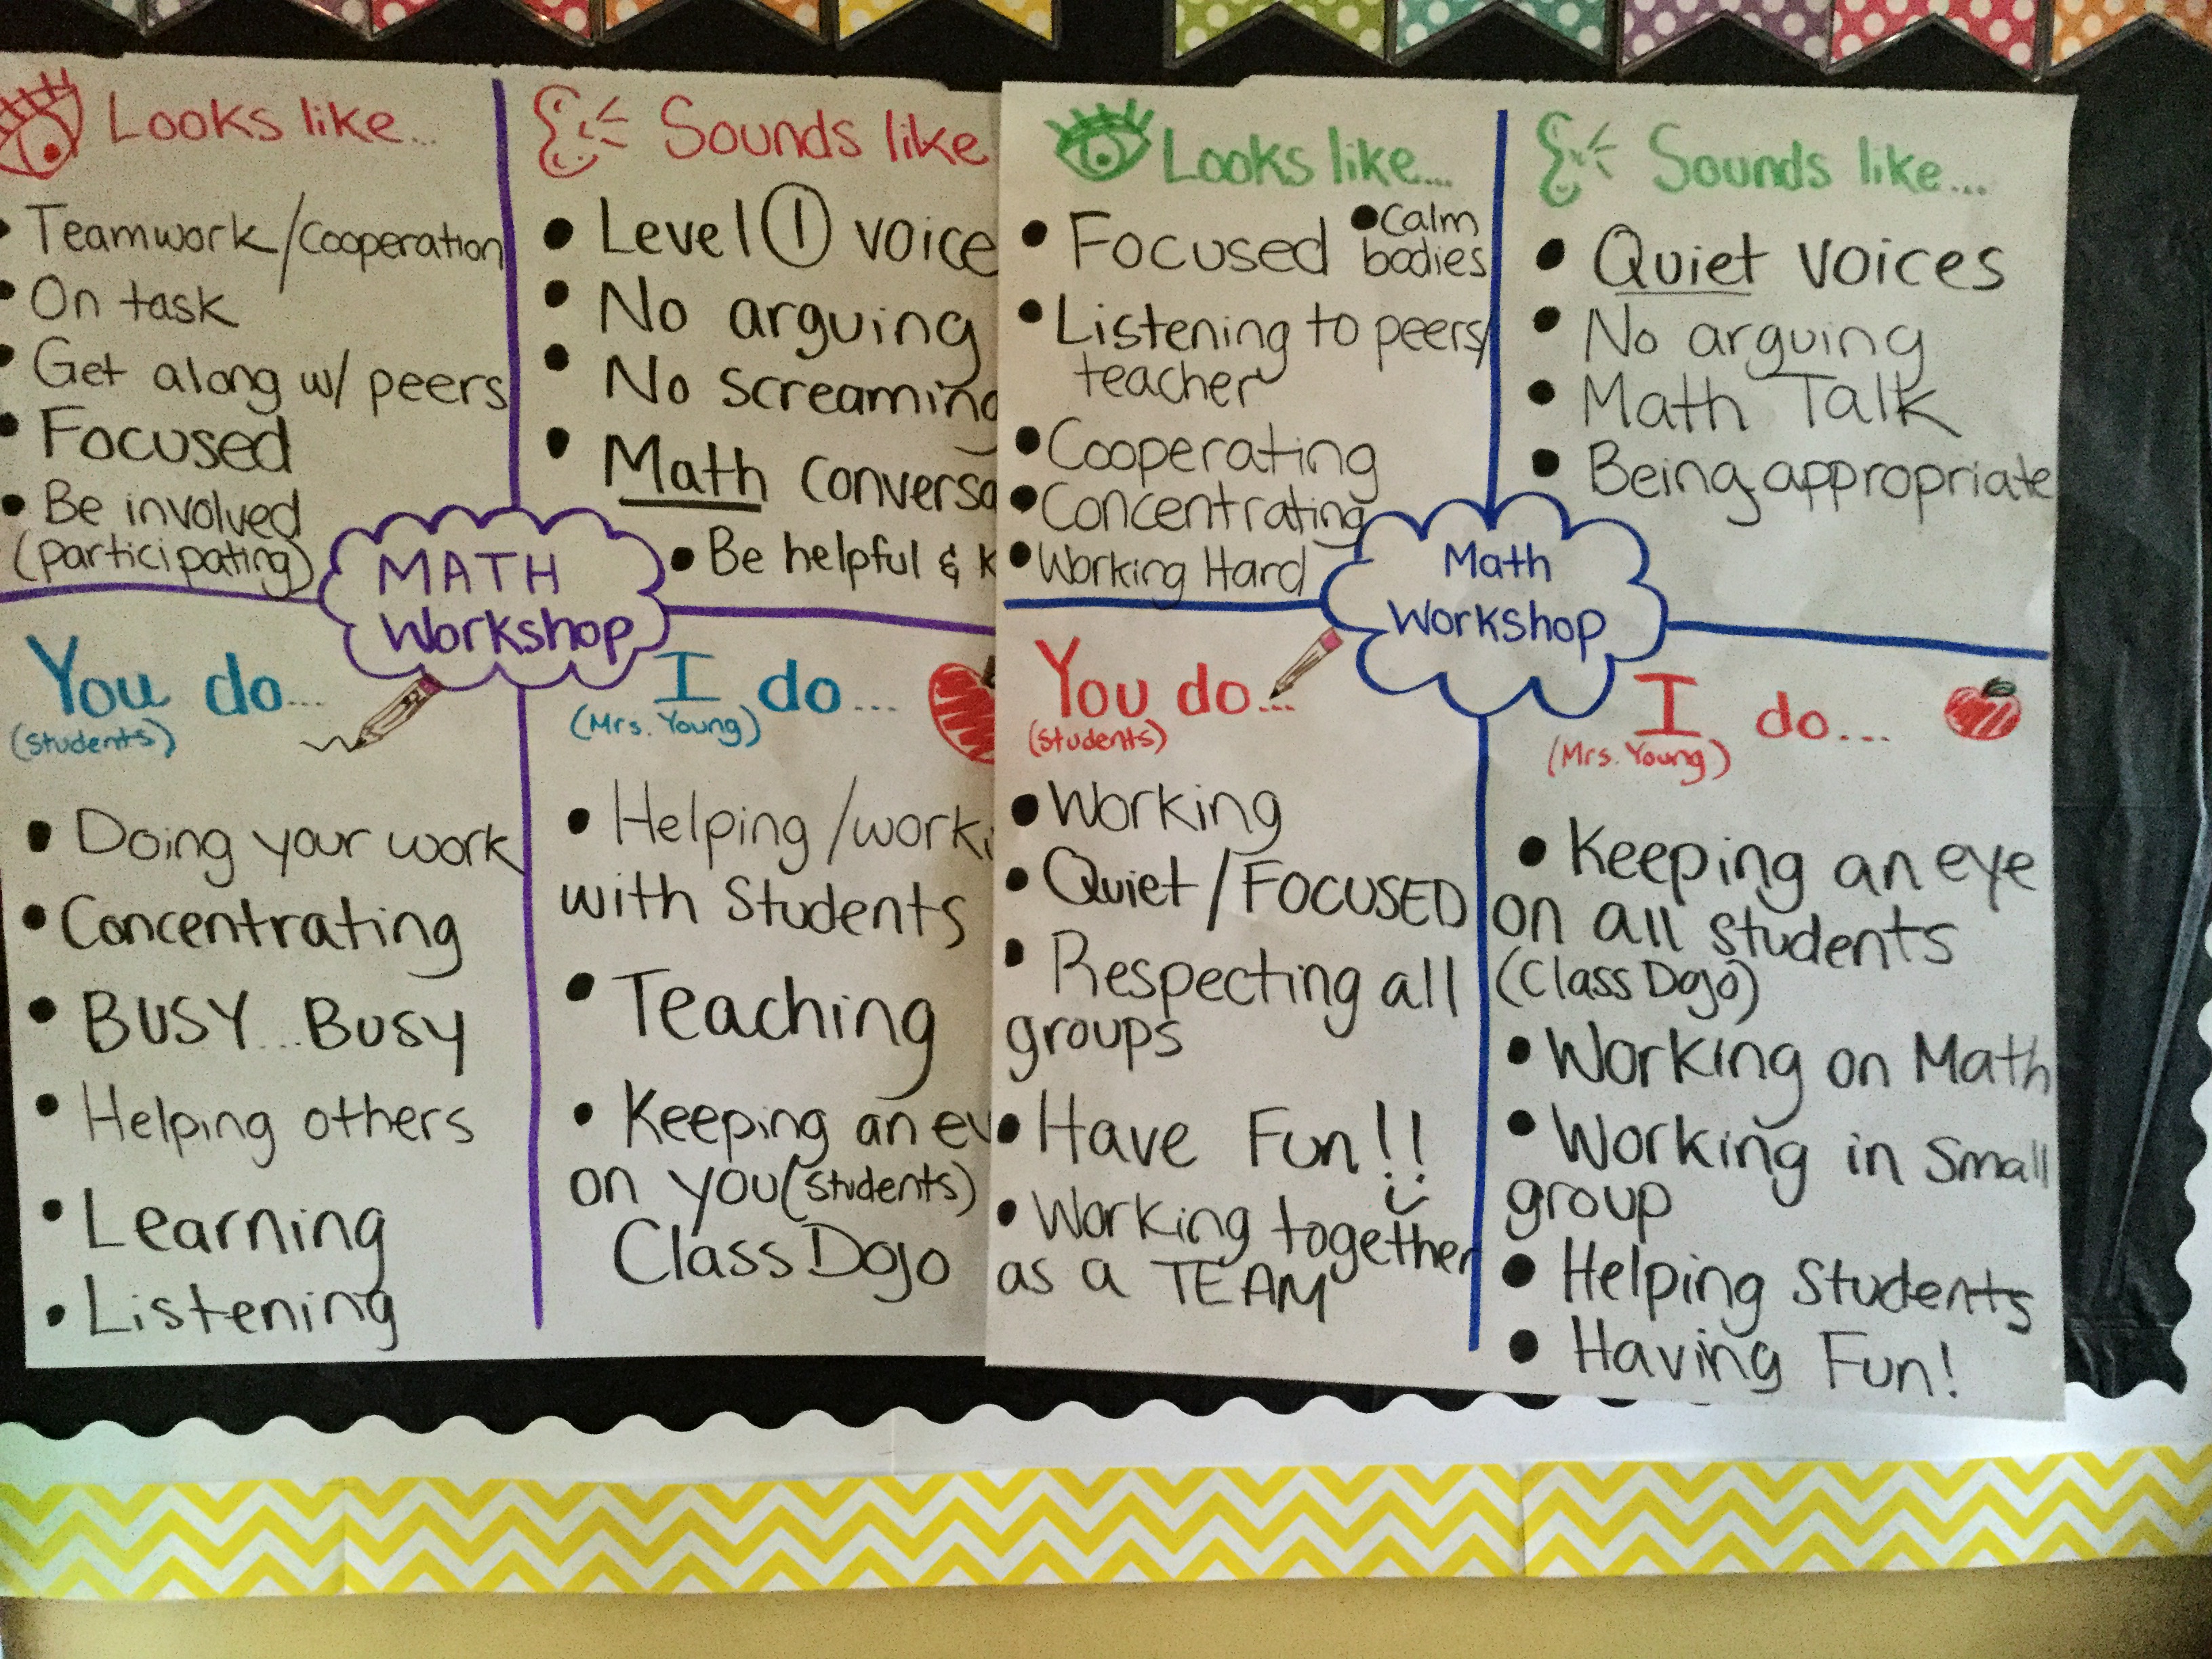 Looks like...
Teamwork/Cooperation
On task
Get along w/ peers
Focused
Be involved
(participating)
Sounds like
Level 1 voice
No arguing
No screaming
Math
Be helpful &
MATH
Workshop
You do...
(students)
Doing your work
Concentrating
BUSY...Busy
Helping others
Learning
Listening
I do...
(Mrs. Young)
Helping/
with Students
Teaching
Keeping an
on you (students)
Class Dojo
Looks like...
Focused
Calm
bodies
Listening to peers/
teacher
Cooperating
Concentrating
Working Hard
Sounds like...
Quiet voices
No arguing
Math Talk
Being appropriate
Math
Workshop
You do...
(students)
Working
Quiet/FOCUSED
Respecting all
groups
Have Fun!!
Working together
as a TEAM
I do...
(Mrs. Young)
Keeping an eye
on all students
(Class Dojo)
Working on Math
Working in Small
group
Helping Students
Having Fun!